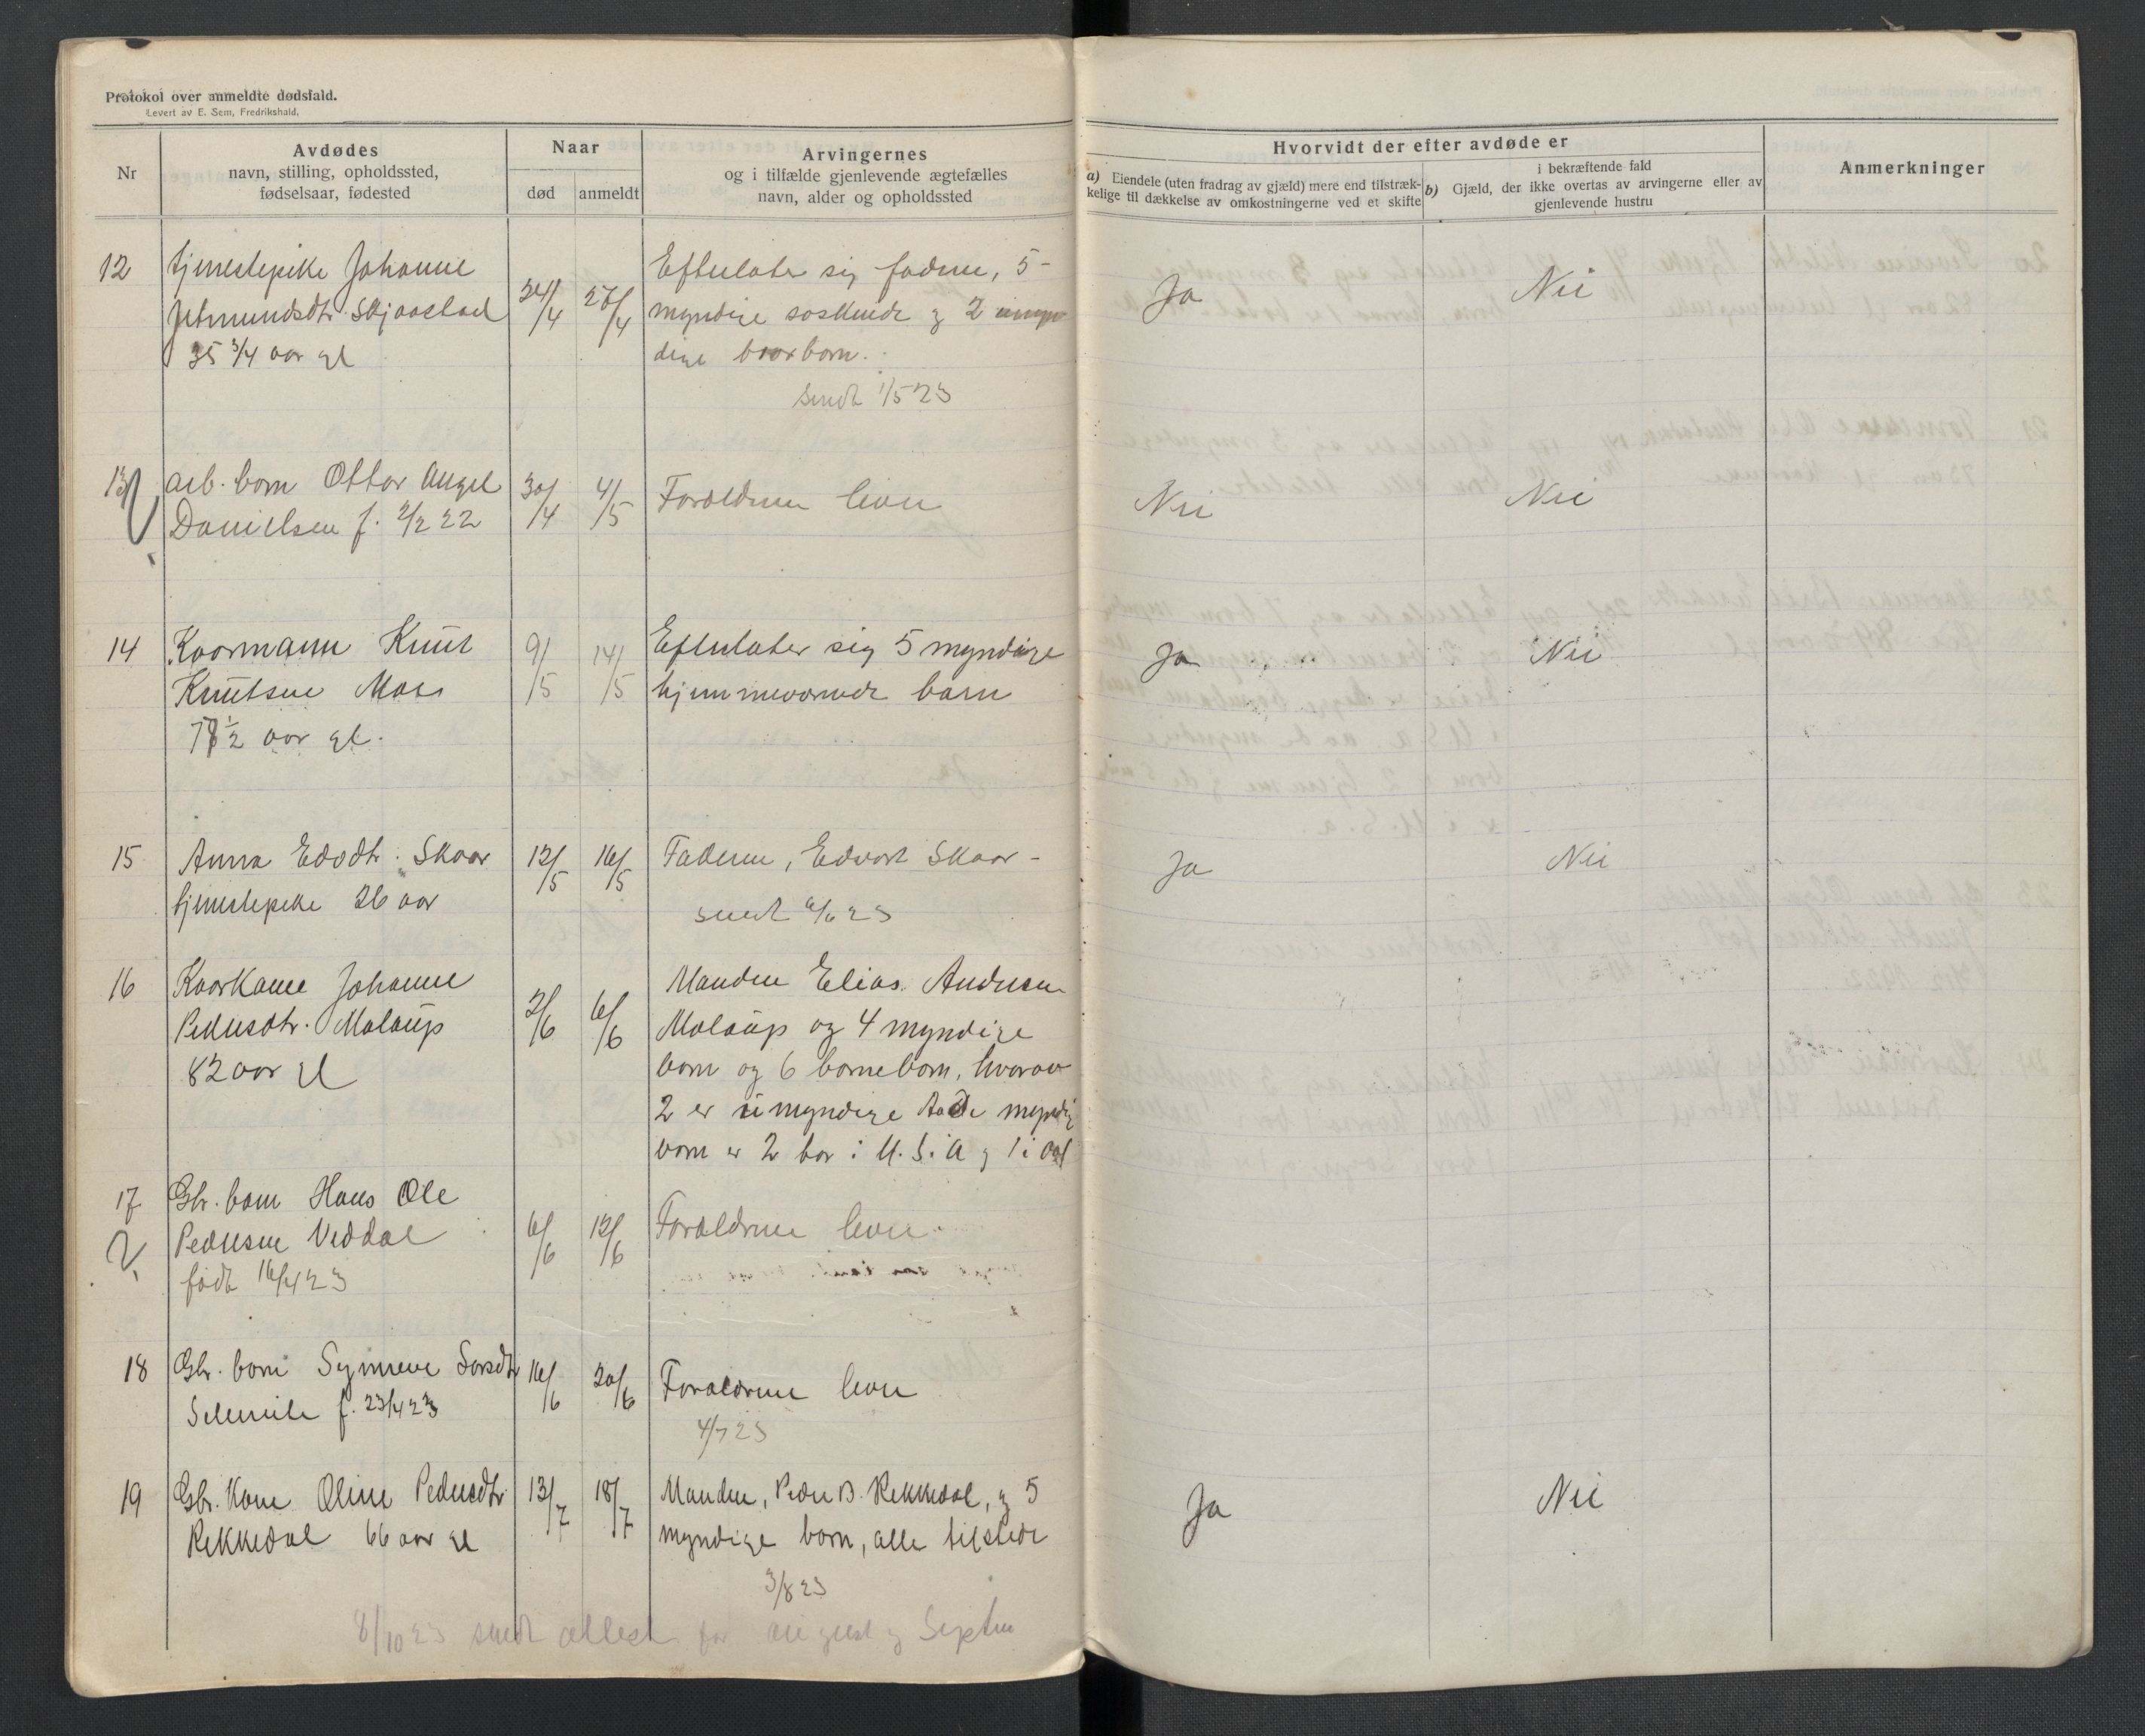 Protokol over anmeldte dødsfald.
Levert av E. Sem, Fredrikshald.
Nr
Avdødes
navn, stilling, opholdssted,
fødselsaar, fødested
Naar
død
anmeldt
Arvingernes
og i tilfælde gjenlevende ægtefælles
navn, alder og opholdssted
Hvorvidt der efter avdøde er
a) Eiendele (uten fradrag av gjæld) mere end tilstræk-
kelige til dækkelse av omkostningerne ved et skifte
i bekræftende fald
b) Gjæld, der ikke overtas av arvingerne eller av
gjenlevende hustru
Anmerkninger
12
tjenestepike Johanne
Jetmundsdtr. Skjaastad
35 3/4 aar gl
24/4
27/4
Efterlater sig faderen, 5
myndige søskende og 2 umyn
dige brorbørn.
sendt 1/5 23
Ja
Nei
13
arb. barn Ottar Angel
Danielsen f. 2/2 22
30/4
4/5
Forældrene lever
Nei
Nei
14
Kaarmann Knut
Knutsen Moen
78 1/2 aar gl.
9/5
14/5
Efterlater sig 5 myndige
hjemmeværende børn
Ja
Nei
15
Anna Edvdtr. Skaar
tjenestepike 26 aar
12/5
16/5
Faderen, Edvart Skaar -
sendt 6/6 23
Ja
Nei
16
Kaarkone Johanne
Pedersdtr. Molaup
82 aar gl
2/6
6/6
Manden Elias Andersen
Molaup og 4 myndige
børn og 6 barnebørn, hvorav
2 er umyndige Av de myndig
børn er 2 bor i U.S.A og 1 i
17
Gbr. barn Hans Ole
Pedersen Veddal
født 16/4 23
6/6
12/6
Forældrene lever
18
Gbr. barn Synneve Larsdtr
f. 23/4 23
16/6
20/6
Forældrene lever
4/7 23
19
Gbr. Kone Oline Pedersdtr
Rekkedal 66 aar gl
13/7
18/7
Manden, Peder B. Rekkedal, og 5
myndige børn, alle tilstede
3/8 23
Ja
Nei
8/10 23 sendt attest for august og Septbr